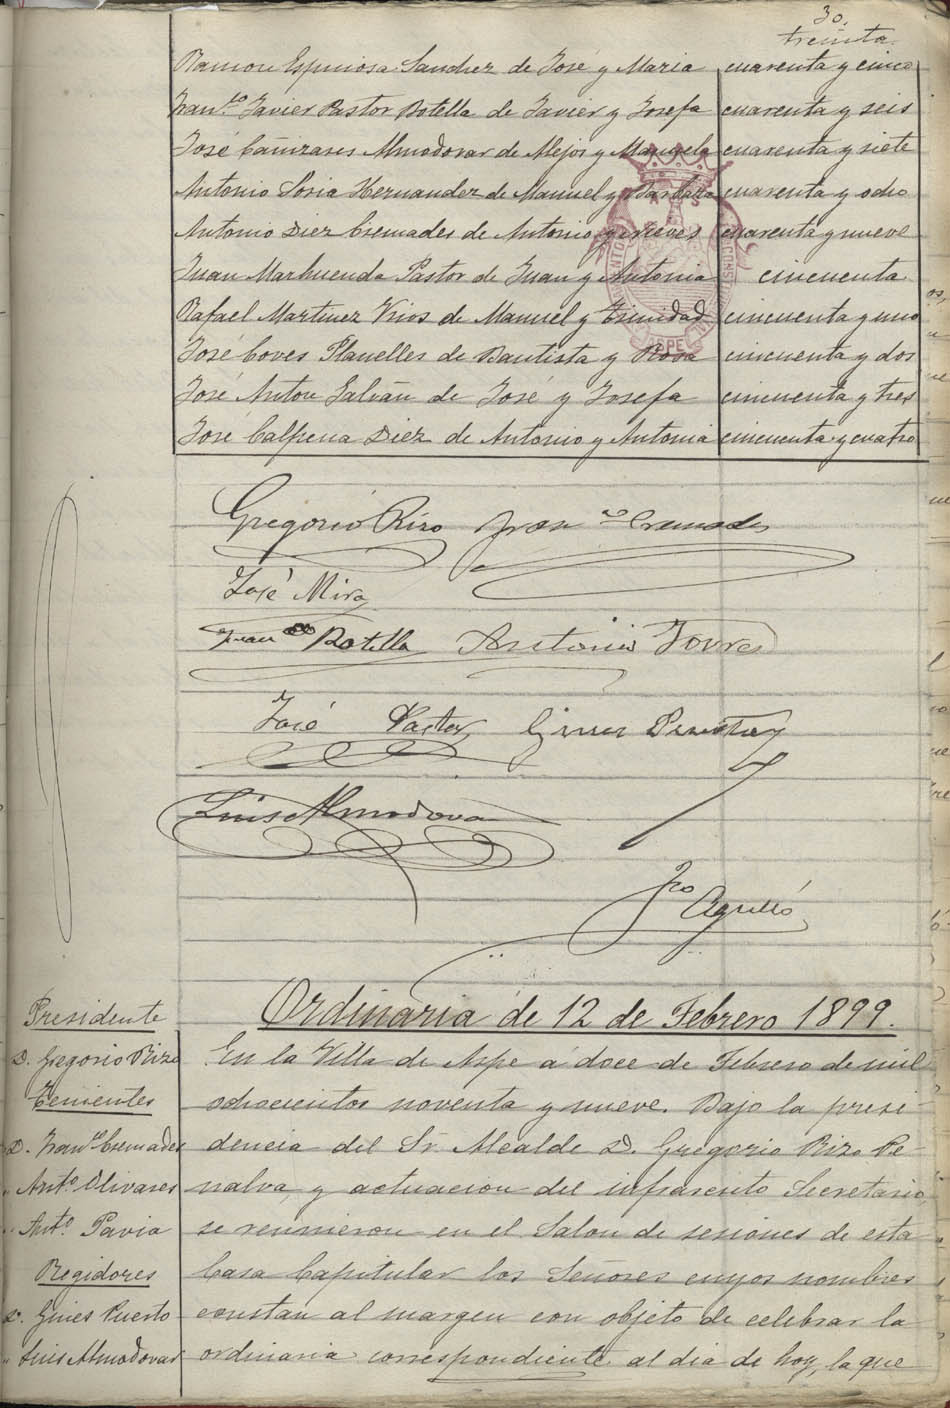 30.
treinta.
Ramon Espinosa Sanchez de José y Maria cuarenta y cinco
Franco. Javier Pastor Botella de Javier y Josefa cuarenta y seis
José Cañizares Almodovar de Alejo y Manuela cuarenta y siete
Antonio Soria Hernandez de Manuel y Barbara cuarenta y ocho
Antonio Diez Cremades de Antonio y Nieves cuarenta y nueve
Juan Marhuenda Pastor de Juan y Antonia cincuenta
Rafael Martinez de Manuel y Trinidad cincuenta y uno
José Coves Planelles de Bautista y Rosa cincuenta y dos
José Anton Galvañ de José y Josefa cincuenta y tres
José Calpena Diez de Antonio y Antonia cincuenta y cuatro
Gregorio Rizo Franco Cremades
José Mira
Franco Botella Antonio Torres
José Pastor Gines
Luis Almodovar
Fco Agulló
Ordinaria de 12 de Febrero 1899.
Presidente
D. Gregorio Rizo
Tenientes
D. Franco Cremades
" Anto. Olivares
" Anto. Pavia
Regidores
D. Gines Puerto
" Luis Almodovar
En la Villa de Aspe a doce de Febrero de mil
ochocientos noventa y nueve. Bajo la presi-
dencia del Sr. Alcalde D. Gregorio Rizo Pe-
nalva, y actuacion del infrascrito Secretario,
se reunieron en el Salon de sesiones de esta
Casa Capitular los Señores cuyos nombres
constan al margen con objeto de celebrar la
ordinaria correspondiente al dia de hoy, la que